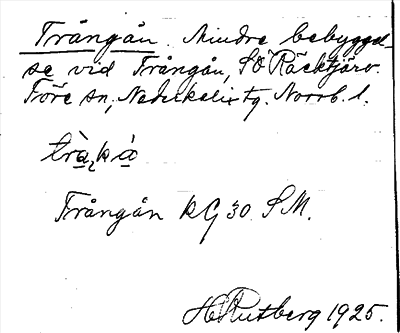 Trångån. Mindre bebyggel-
se vid Trångån, SÖ Räcktjärv.
Töre sn, Nederkalix tg. Norrb. l.
Trångån kG 30 SM.
H Rutberg 1925.